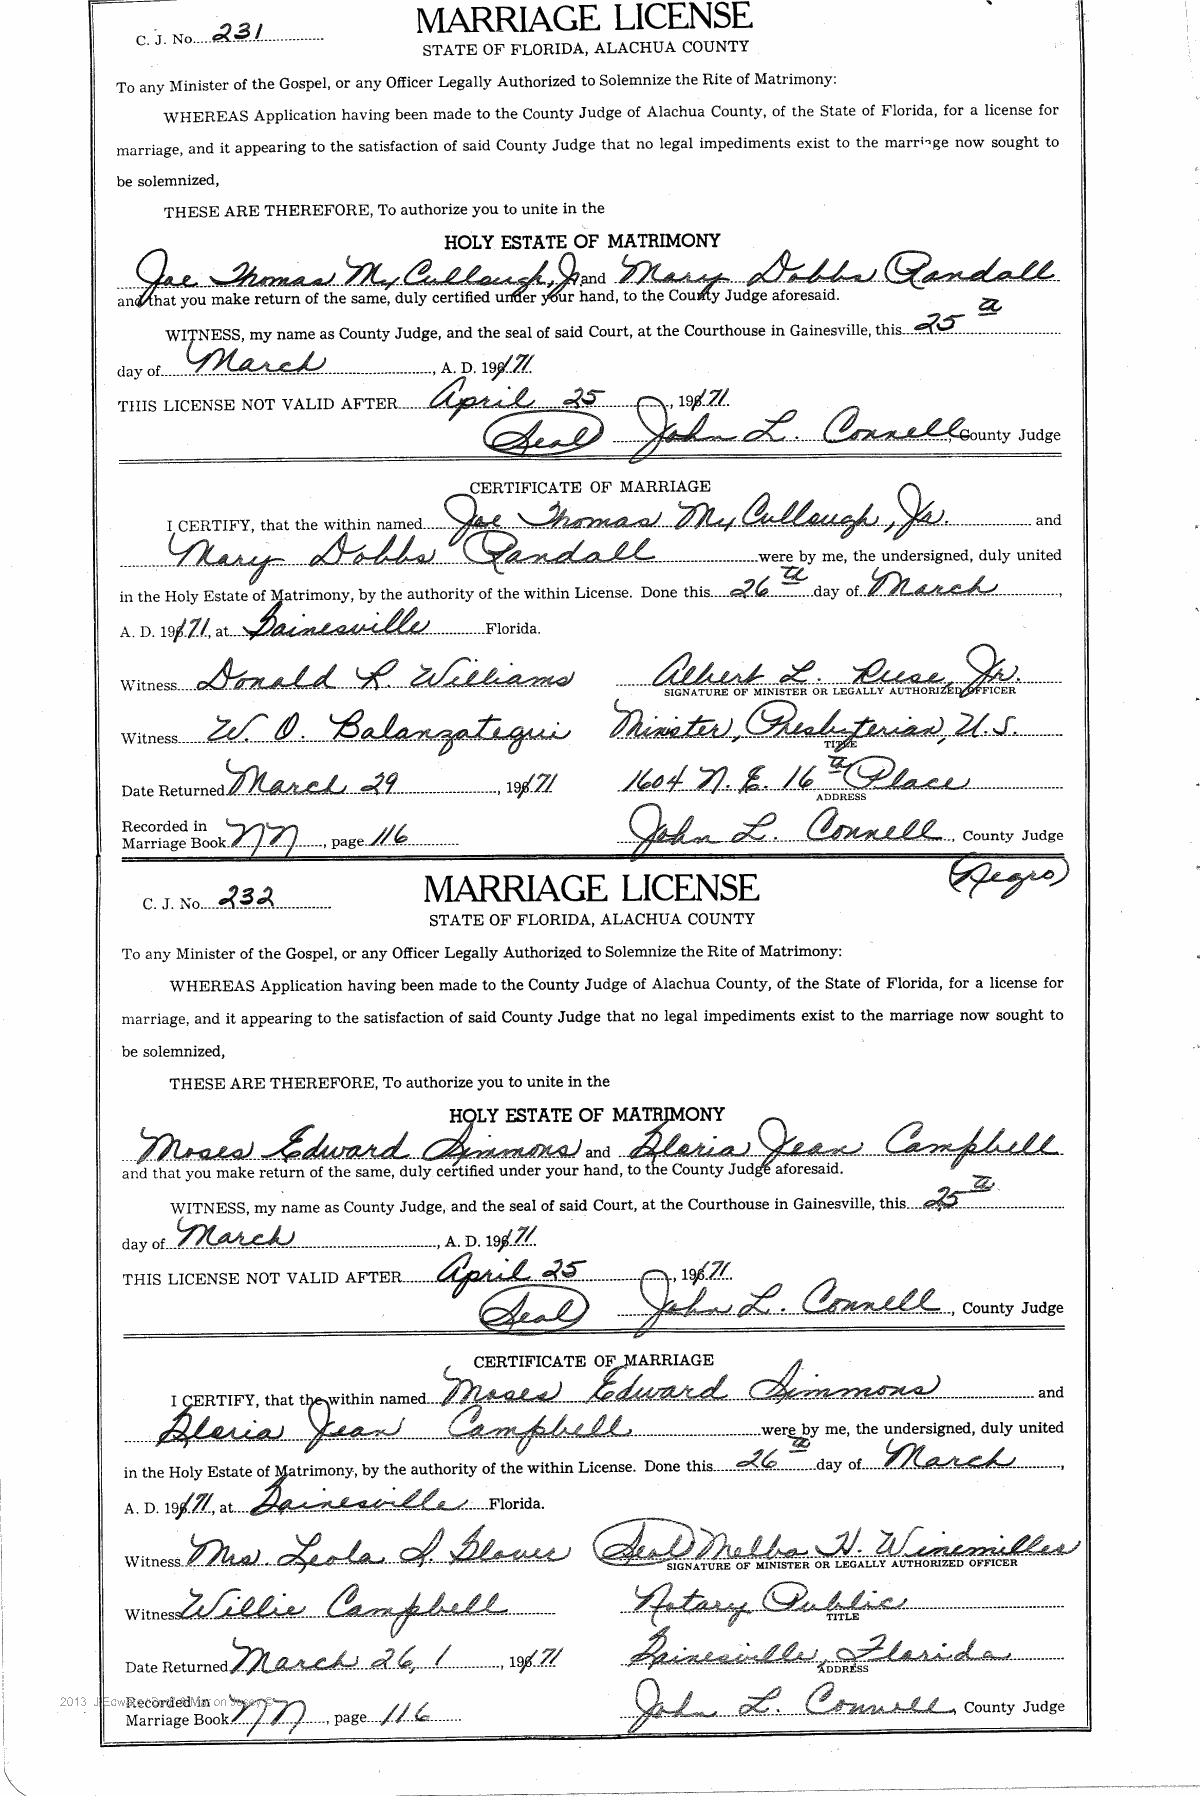 C. J. No. 231
MARRIAGE LICENSE
STATE OF FLORIDA, ALACHUA COUNTY
To any Minister of the Gospel, or any Officer Legally Authorized to Solemnize the Rite of Matrimony:
WHEREAS Application having been made to the County Judge of Alachua County, of the State of Florida, for a license for
marriage, and it appearing to the satisfaction of said County Judge that no legal impediments exist to the marriage now sought to
be solemnized,
THESE ARE THEREFORE, To authorize you to unite in the
HOLY ESTATE OF MATRIMONY
Joe Thomas McCullough, Jr. and Mary Dobbs Randall
and that you make return of the same, duly certified under your hand, to the County Judge aforesaid.
WITNESS, my name as County Judge, and the seal of said Court, at the Courthouse in Gainesville, this 25th
day of March, A. D. 1971.
THIS LICENSE NOT VALID AFTER April 25, 1971.
(Seal) John L. Connell, County Judge
CERTIFICATE OF MARRIAGE
I CERTIFY, that the within named Joe Thomas McCullough, Jr. and
Mary Dobbs Randall were by me, the undersigned, duly united
in the Holy Estate of Matrimony, by the authority of the within License. Done this 26th day of March,
A. D. 1971, at Gainesville Florida.
Witness Donald R. Williams Albert L. Reese, Jr.
SIGNATURE OF MINISTER OR LEGALLY AUTHORIZED OFFICER
Witness W. O. Balanzategui Minister, Presbyterian, U.S.
TITLE
Date Returned March 29, 1971 1604 N. E. 16th Place
ADDRESS
Recorded in
Marriage Book NN, page 116 John L. Connell, County Judge
(Negro)
C. J. No. 232
MARRIAGE LICENSE
STATE OF FLORIDA, ALACHUA COUNTY
To any Minister of the Gospel, or any Officer Legally Authorized to Solemnize the Rite of Matrimony:
WHEREAS Application having been made to the County Judge of Alachua County, of the State of Florida, for a license for
marriage, and it appearing to the satisfaction of said County Judge that no legal impediments exist to the marriage now sought to
be solemnized,
THESE ARE THEREFORE, To authorize you to unite in the
HOLY ESTATE OF MATRIMONY
Moses Edward Simmons and Gloria Jean Campbell
and that you make return of the same, duly certified under your hand, to the County Judge aforesaid.
WITNESS, my name as County Judge, and the seal of said Court, at the Courthouse in Gainesville, this 25th
day of March, A. D. 1971.
THIS LICENSE NOT VALID AFTER April 25, 1971.
(Seal) John L. Connell, County Judge
CERTIFICATE OF MARRIAGE
I CERTIFY, that the within named Moses Edward Simmons and
Gloria Jean Campbell were by me, the undersigned, duly united
in the Holy Estate of Matrimony, by the authority of the within License. Done this 26th day of March,
A. D. 1971, at Gainesville Florida.
Witness Mrs. Leola S. Glover (Seal) Melba H. Winemiller
SIGNATURE OF MINISTER OR LEGALLY AUTHORIZED OFFICER
Witness Willie Campbell Notary Public
TITLE
Date Returned March 26, 1, 1971 Gainesville, Florida
ADDRESS
2013
Recorded in
Marriage Book NN, page 116 John L. Connell, County Judge